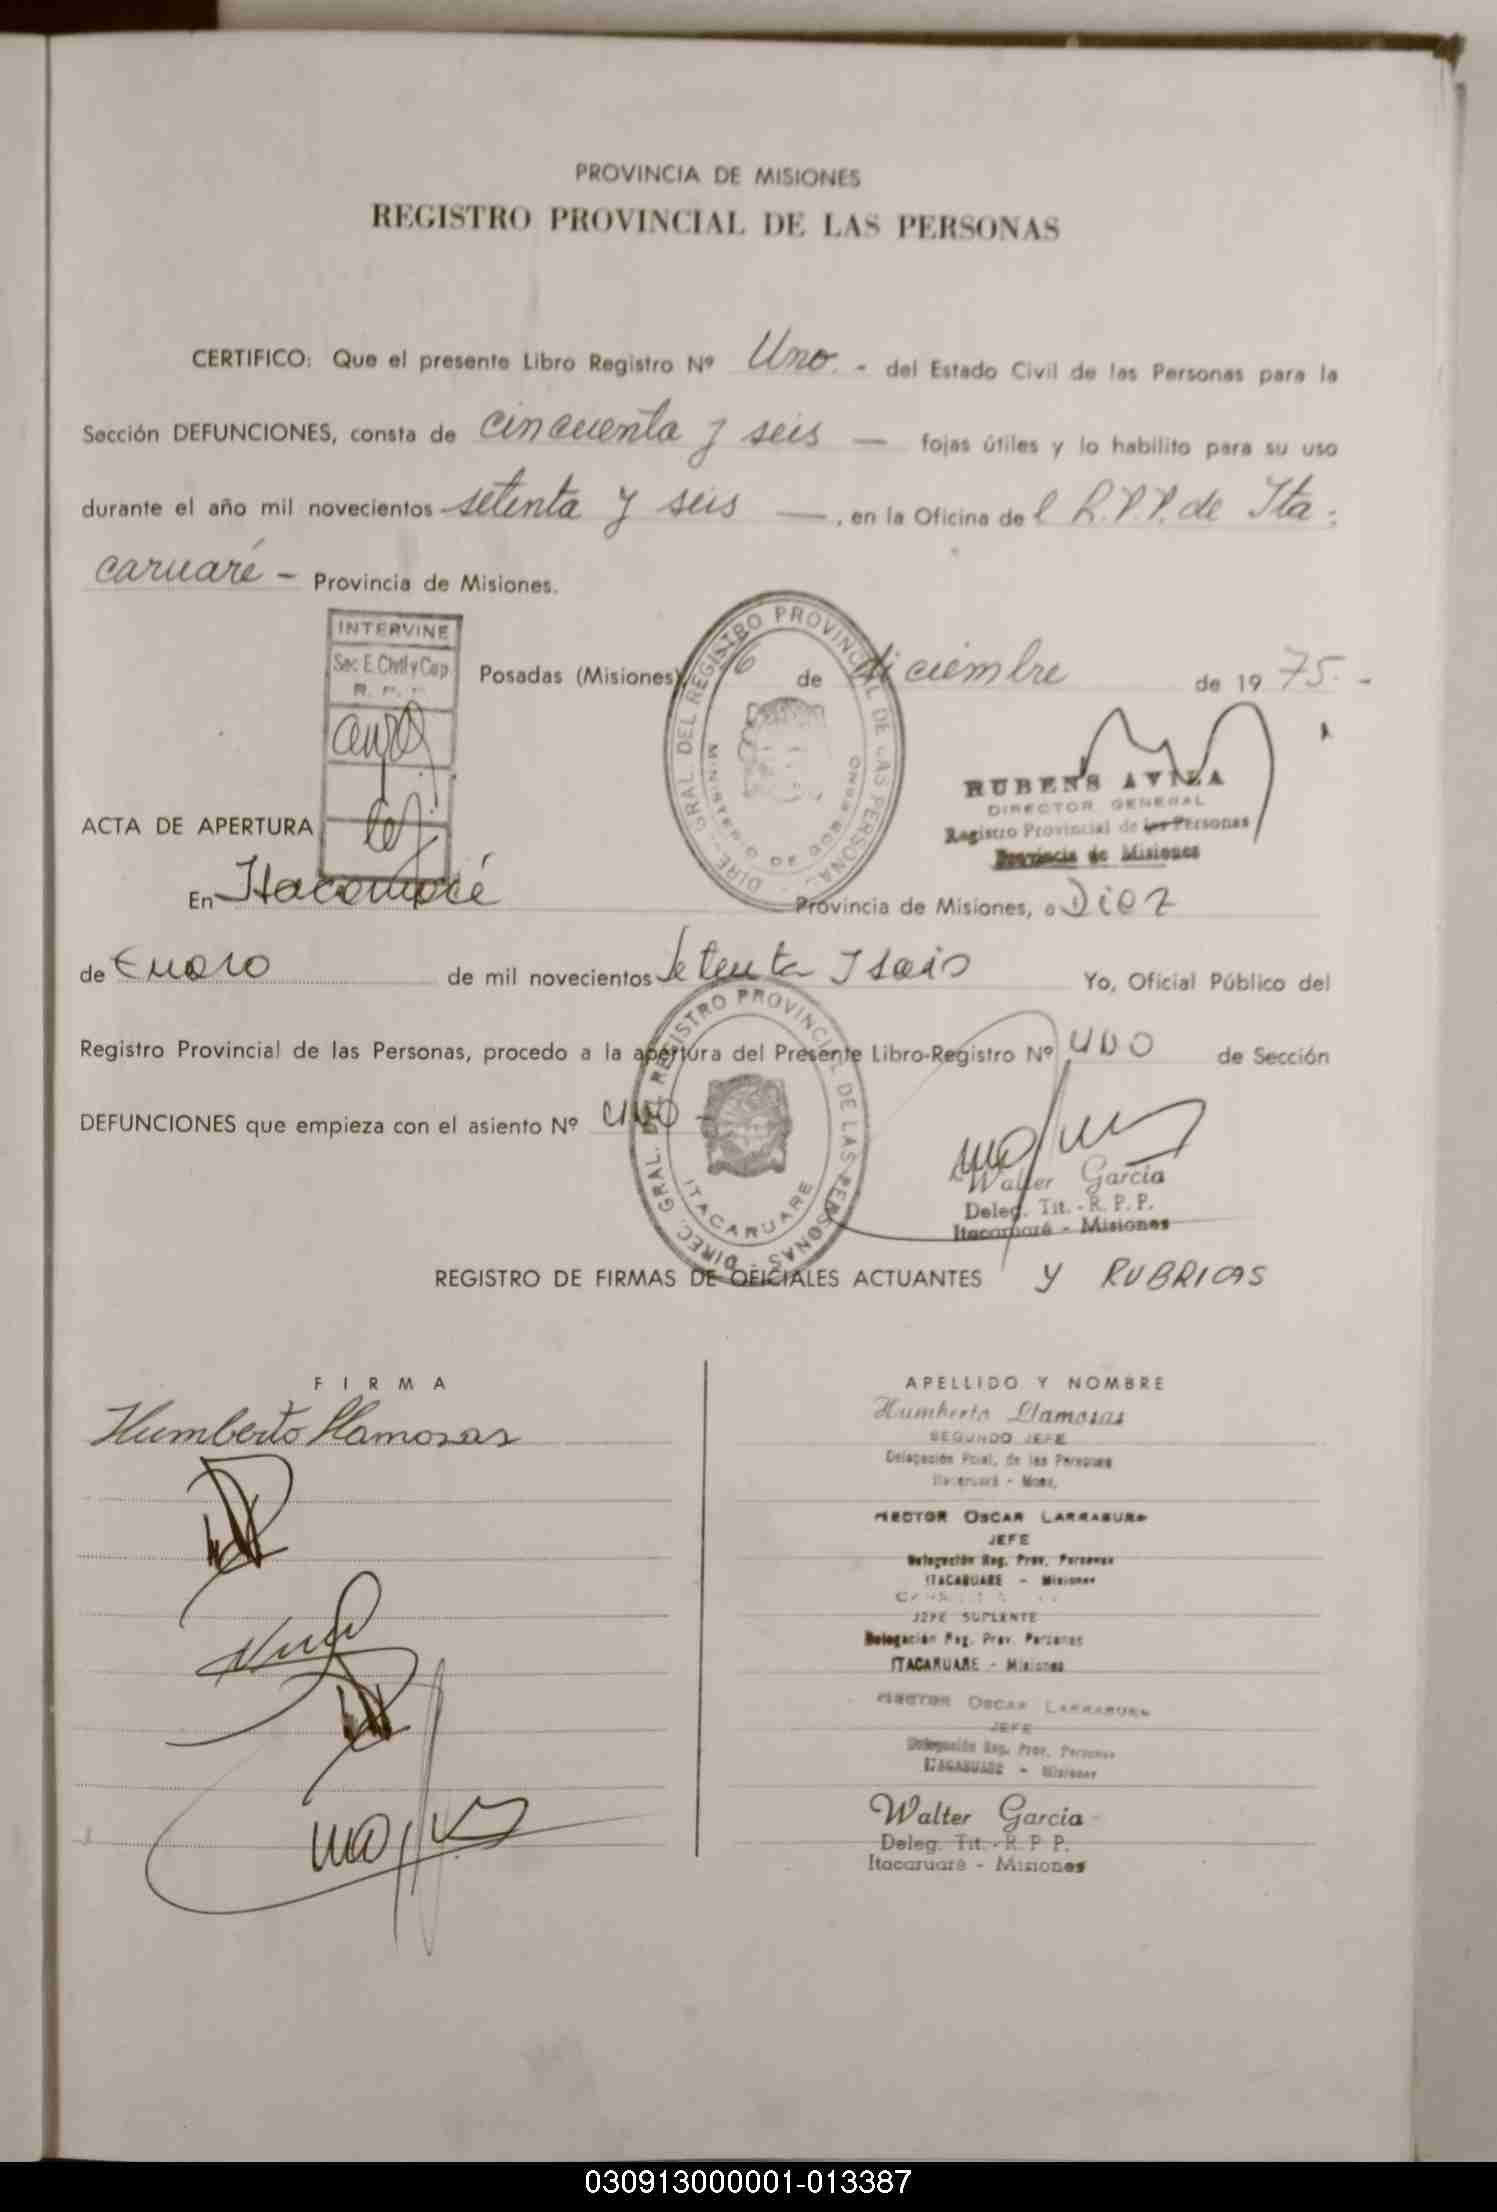 PROVINCIA DE MISIONES
REGISTRO PROVINCIAL DE LAS PERSONAS
CERTIFICO: Que el presente Libro Registro Nº Uno. - del Estado Civil de las Personas para la
Sección DEFUNCIONES, consta de cincuenta y seis — fojas útiles y lo habilito para su uso
durante el año mil novecientos setenta y seis —, en la Oficina del R.P.P. de Ita-
caruaré - Provincia de Misiones.
INTERVINE
Sec. E. Civil y Cap
R. P. P.
Posadas (Misiones) 16 de diciembre de 1975.-
DIRE. GRAL. DEL REGISTRO PROVINCIAL DE LAS PERSONAS
MINISTERIO DE GOBIERNO
RUBENS AVILA
DIRECTOR GENERAL
Registro Provincial de las Personas
Provincia de Misiones
ACTA DE APERTURA
En Itacaruaré Provincia de Misiones, a Diez
de Enero de mil novecientos Setenta y seis Yo, Oficial Público del
Registro Provincial de las Personas, procedo a la apertura del Presente Libro-Registro Nº UNO de Sección
DEFUNCIONES que empieza con el asiento Nº UNO -
DIREC. GRAL. DEL REGISTRO PROVINCIAL DE LAS PERSONAS
ITACARUARE
Walter García
Deleg. Tit. - R. P. P.
Itacaruaré - Misiones
REGISTRO DE FIRMAS DE OFICIALES ACTUANTES Y RUBRICAS
FIRMA
APELLIDO Y NOMBRE
Humberto Llamosas
Humberto Llamosas
SEGUNDO JEFE
Delegación Pcial. de las Personas
Itacaruaré - Mnes.
HECTOR OSCAR LARRABURU
JEFE
Delegación Reg. Prov. Personas
ITACARUARE - Misiones
JEFE SUPLENTE
Delegación Reg. Prov. Personas
ITACARUARE - Misiones
HECTOR OSCAR LARRABURU
JEFE
Delegación Reg. Prov. Personas
ITACARUARE - Misiones
Walter García
Deleg. Tit. - R. P. P.
Itacaruaré - Misiones
030913000001-013387